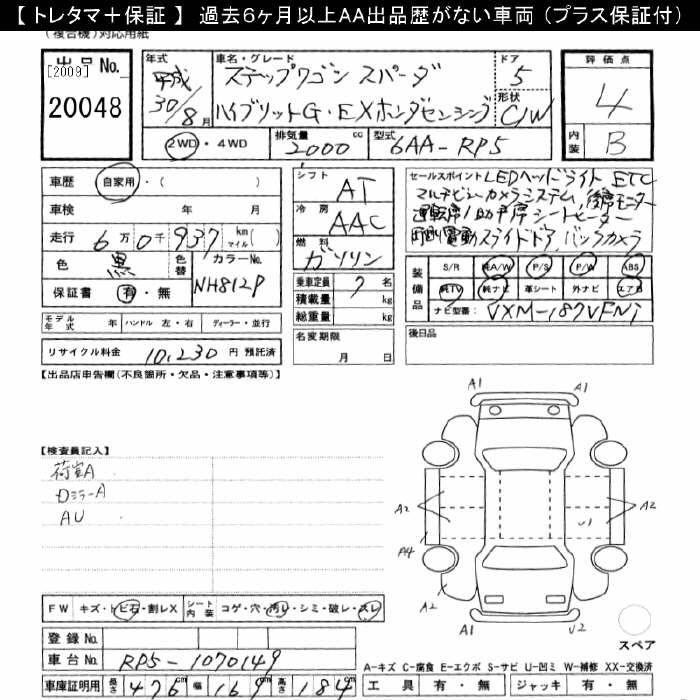 【 トレタマ＋保証 】 過去6ヶ月以上AA出品歴がない車両 (プラス保証付)
(複合機)対応用紙
出品No. [2009] 20048
年式 平成30/8月
車名・グレード ステップワゴン スパーダ ハイブリットG・EXホンダセンシング
ドア 5
形状 C/W
2WD・4WD
排気量 2000 cc
型式 6AA-RP5
評価点 4
内装 B
車歴 自家用・( )
車検 年 月
走行 6万0千937 km マイル( )
色 黒 色替 カラーNo. NH812P
保証書 有・無
シフト AT
冷房 AAC
燃料 ガソリン
乗車定員 7 名
積載量 kg
総重量 kg
セールスポイント LEDヘッドライト ETC
マルチビューカメラシステム, 後席モニター
運転席/助手席シートヒーター
両側電動スライドドア, バックカメラ
装備品 S/R 純A/W P/S P/W ABS
純TV 純ナビ 革シート 外ナビ エアB
ナビ型番: VXM-187VFNi
モデル年式 年 ハンドル 左・右 ディーラー・並行
名変期限 月 日
後日品
リサイクル料金 10,230 円 預託済
【出品店申告欄(不良箇所・欠品・注意事項等)】
【検査員記入】
荷室A
Dミラー A
AU
A1 A1
A2 A2
U1
A4
A2
A1 U2
スペア
FW キズ・トビ石・割レX シート内装 コゲ・穴・汚レ・シミ・破レ・スレ
登録No.
車台No. RP5-1070149
A-キズ C-腐食 E-エクボ S-サビ U-凹ミ W-補修 XX-交換済
車庫証明用 長さ 476 cm 幅 169 cm 高さ 184 cm
工具 有・無 ジャッキ 有・無